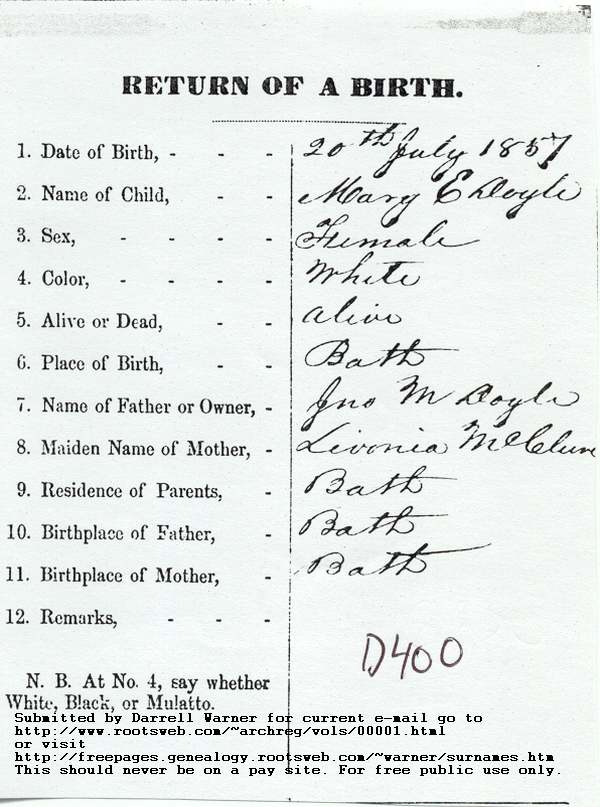 RETURN OF A BIRTH.
1. Date of Birth, - - - 20th July 1857
2. Name of Child, - - Mary E Doyle
3. Sex, - - - - Female
4. Color, - - - - White
5. Alive or Dead, - - alive
6. Place of Birth, - - Bath
7. Name of Father or Owner, - Jno M Doyle
8. Maiden Name of Mother, - Livonia McClure
9. Residence of Parents, - Bath
10. Birthplace of Father, - Bath
11. Birthplace of Mother, - Bath
12. Remarks, - - -
D400
N. B. At No. 4, say whether
White, Black, or Mulatto.
Submitted by Darrell Warner for current e-mail go to
http://www.rootsweb.com/~archreg/vols/00001.html
or visit
http://freepages.genealogy.rootsweb.com/~warner/surnames.htm
This should never be on a pay site. For free public use only.